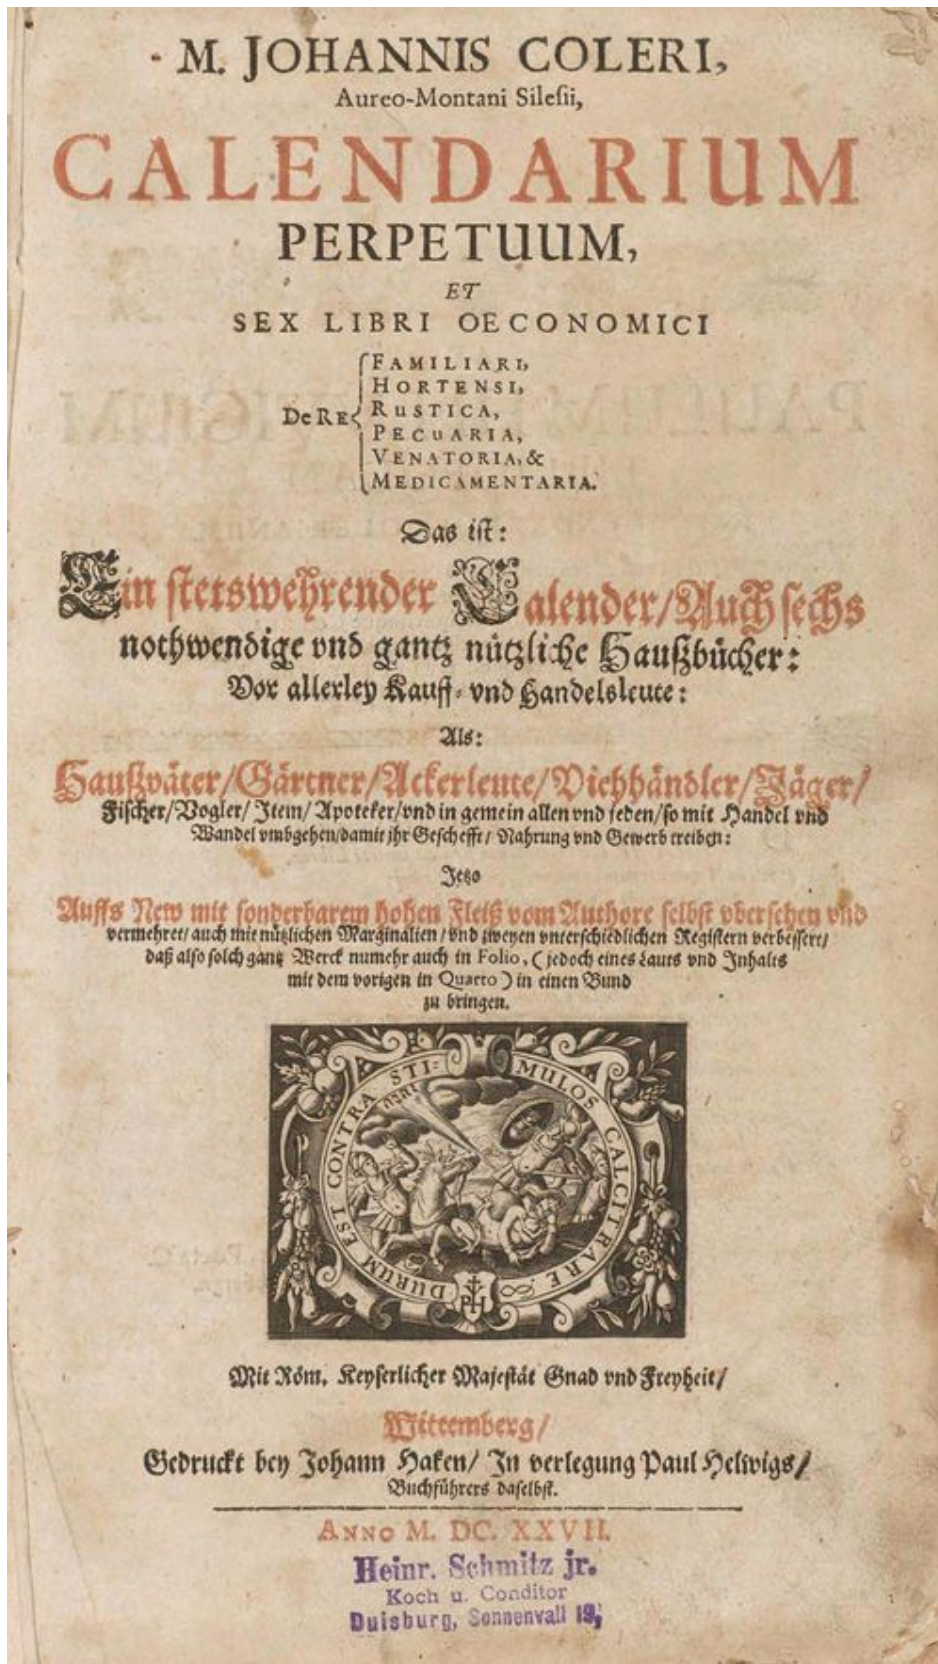 M. JOHANNIS COLERI,
Aureo-Montani Sileſii,
CALENDARIUM
PERPETUUM,
ET
SEX LIBRI OECONOMICI
De RE
FAMILIARI,
HORTENSI,
RUSTICA,
PECUARIA,
VENATORIA, &
MEDICAMENTARIA.
Das iſt:
Ein ſtetswehrender Calender/Auch ſechs
nothwendige vnd gantz nützliche Haußbücher:
Vor allerley Kauff- vnd Handelsleute:
Als:
Haußväter/Gärtner/Ackerleute/Viehhändler/Jäger/
Fiſcher/Vogler/Item/Apoteker/vnd in gemein allen vnd jeden/ſo mit Handel vnd
Wandel vmbgehen/damit jhr Geſchefft/Nahrung vnd Gewerb treiben:
Jetzo
Auffs New mit ſonderbarem hohen Fleiß vom Authore ſelbſt vberſehen vnd
vermehret/auch mit nützlichen Marginalien/vnd zweyen vnterſchiedlichen Regiſtern verbeſſert/
daß alſo ſolch gantz Werck numehr auch in Folio, (jedoch eines Lauts vnd Inhalts
mit dem vorigen in Quarto) in einen Bund
zu bringen.
DURUM EST CONTRA STI-MULOS CALCITRARE
יהוה
PH
Mit Röm. Keyſerlicher Majeſtät Gnad vnd Freyheit/
Wittemberg/
Gedruckt bey Johann Haken/ In verlegung Paul Helwigs/
Buchführers daſelbſt.
ANNO M. DC. XXVII.
Heinr. Schmitz jr.
Koch u. Conditor
Duisburg, Sonnenwall 19,